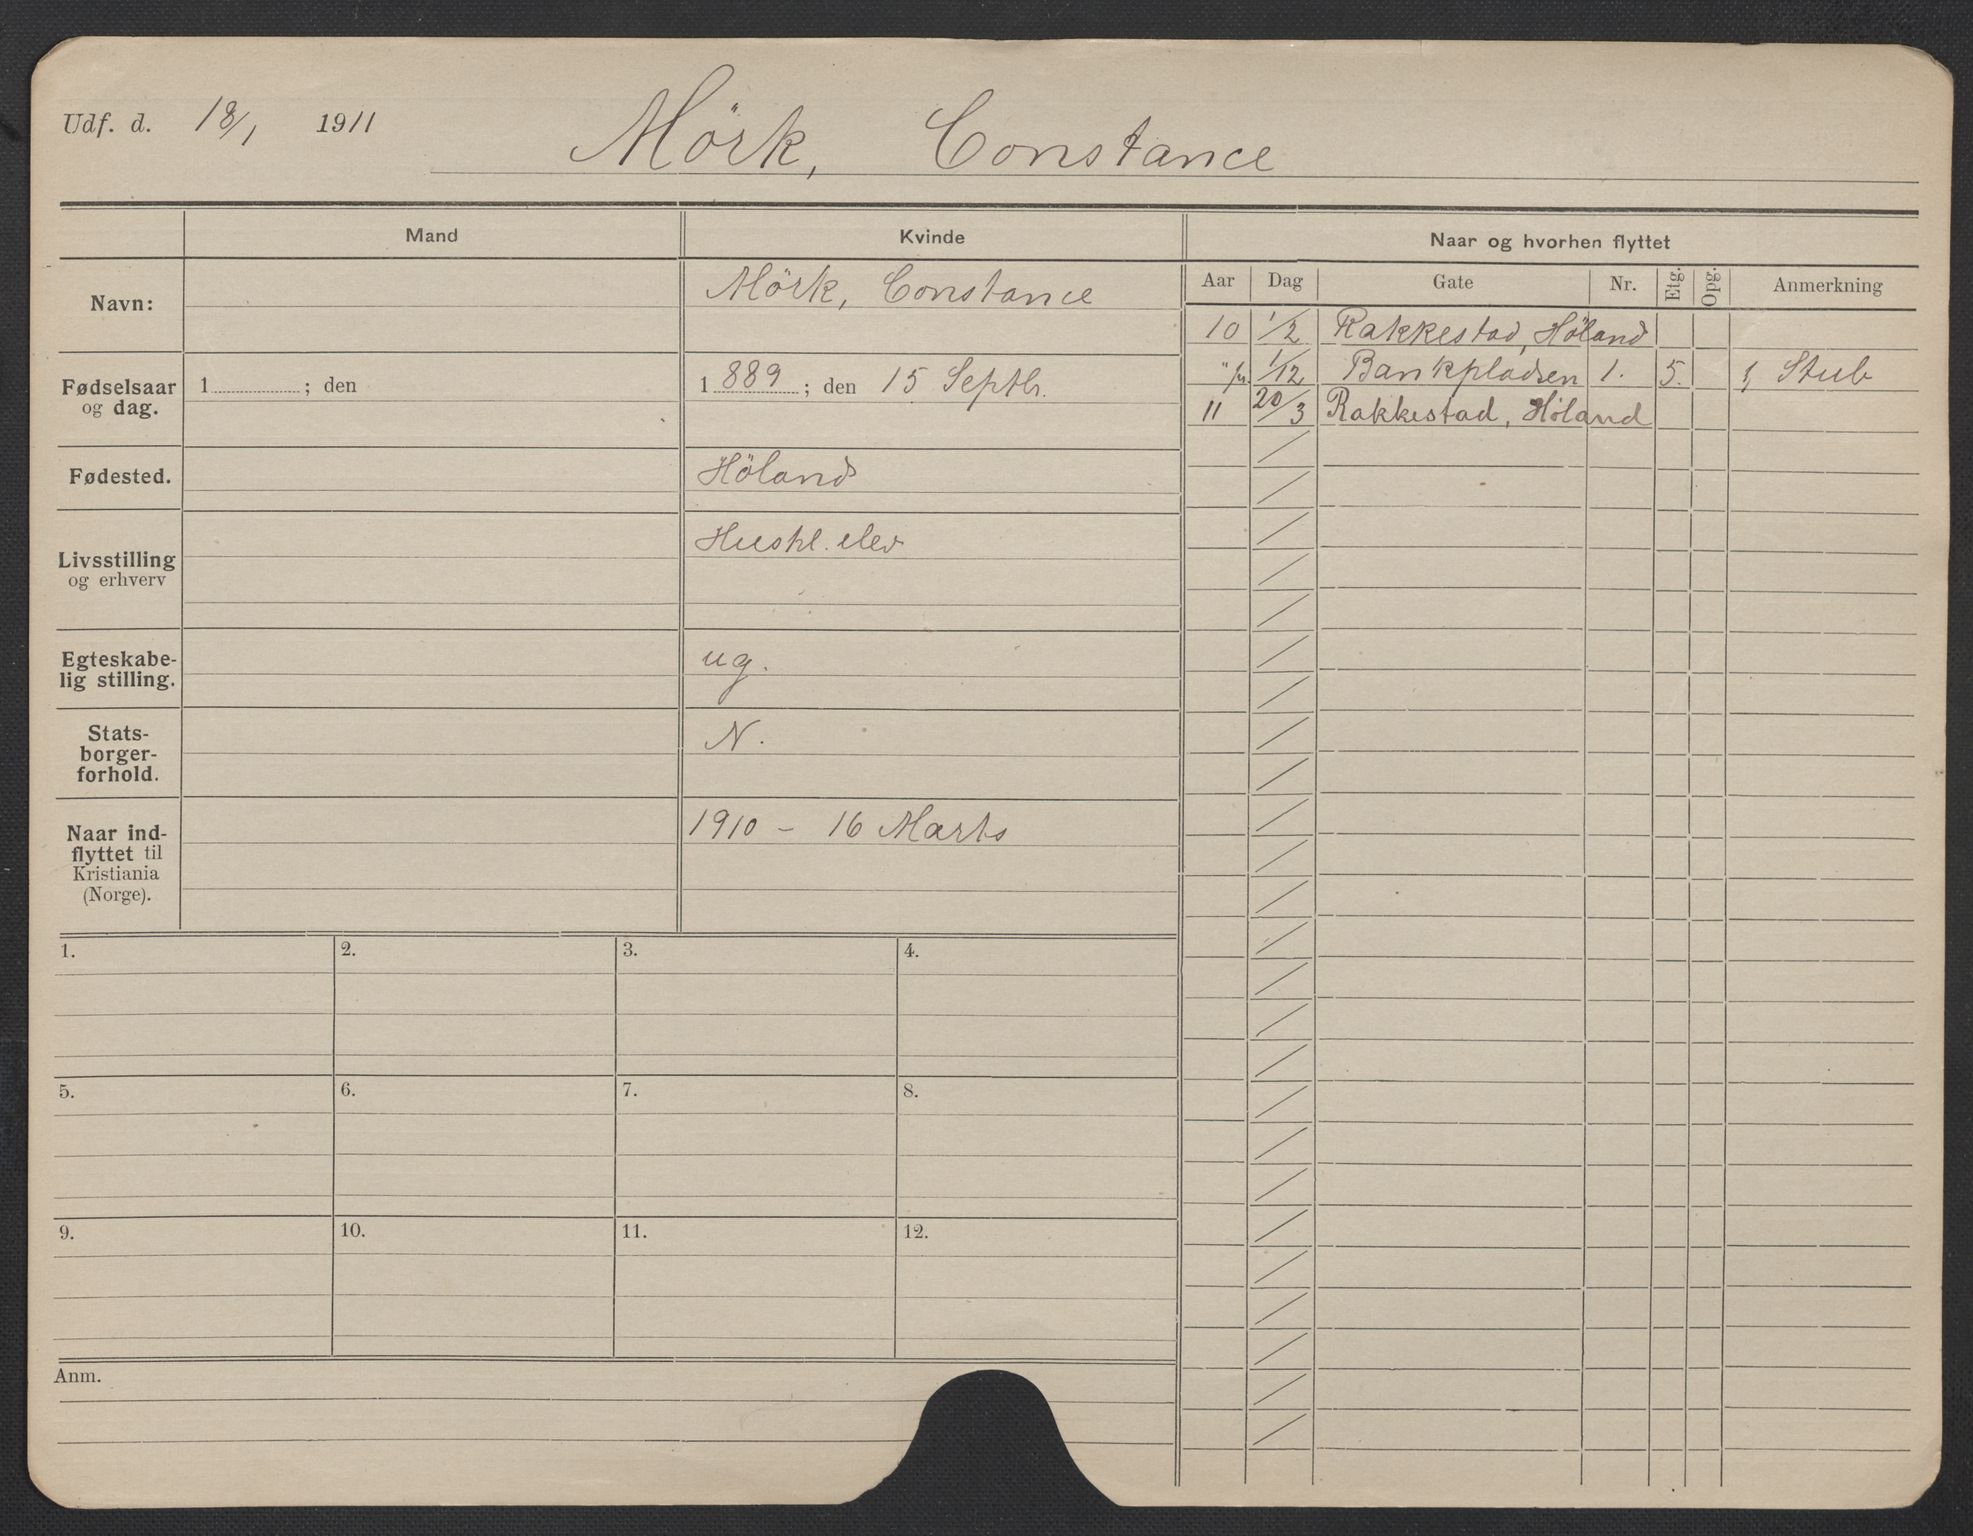 Udf. d. 18/1 1911
Mörk, Constance
Mand
Kvinde
Naar og hvorhen flyttet
Aar Dag Gate Nr. Etg. Opg. Anmerkning
Navn:
Mörk, Constance
10 1/2 Rakkestad, Höland
" fr. 1/12 Bankpladsen 1. 5. 1, Stub
11 20/3 Rakkestad, Höland
Fødselsaar
og dag.
1 ; den
1 889 ; den 15 Septbr.
Fødested.
Höland
Livsstilling
og erhverv
Hushl. elev
Egteskabe-
lig stilling.
ug.
Stats-
borger-
forhold.
N.
Naar ind-
flyttet til
Kristiania
(Norge).
1910 - 16 Marts
1. 2. 3. 4.
5. 6. 7. 8.
9. 10. 11. 12.
Anm.